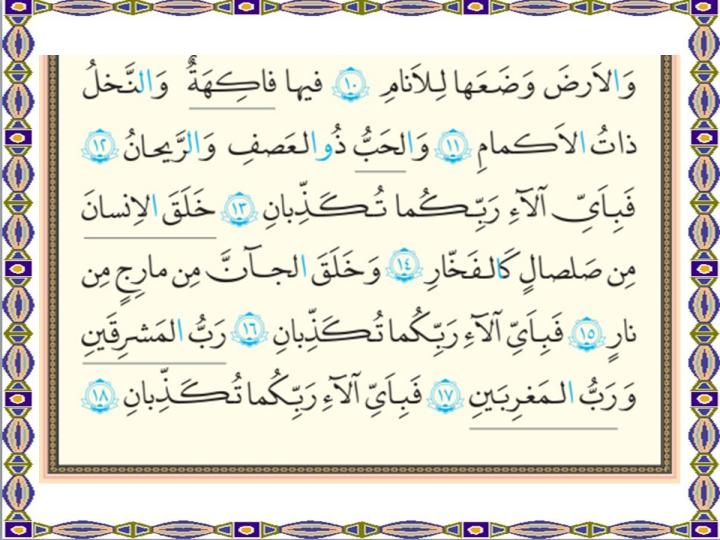 وَالاَرضَ وَضَعَها لِلاَنامِ ﴿١٠﴾ فيها فاكِهَةٌ وَالنَّخلُ
ذاتُ الاَكمامِ ﴿١١﴾ وَالحَبُّ ذُوالعَصفِ وَالرَّيحانُ ﴿١٢﴾
فَبِاَىِّ آلآءِ رَبِّكُما تُكَذِّبانِ ﴿١٣﴾ خَلَقَ الاِنسانَ
مِن صَلصالٍ كَالفَخّارِ ﴿١٤﴾ وَخَلَقَ الجآنَّ مِن مارِجٍ مِن
نارٍ ﴿١٥﴾ فَبِاَىِّ آلآءِ رَبِّكُما تُكَذِّبانِ ﴿١٦﴾ رَبُّ المَشرِقَينِ
وَرَبُّ المَغرِبَينِ ﴿١٧﴾ فَبِاَىِّ آلآءِ رَبِّكُما تُكَذِّبانِ ﴿١٨﴾